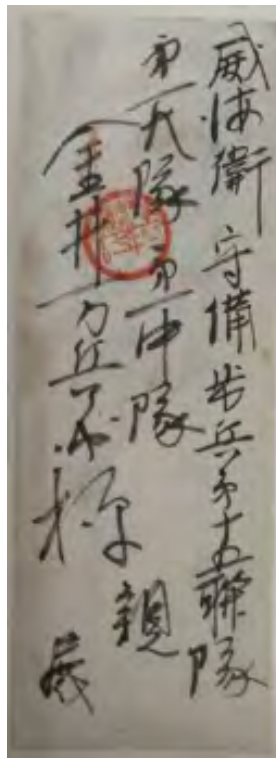 威海衛 守備 歩兵第十五聯隊
第一大隊 第一中隊
金井万兵 様
親展